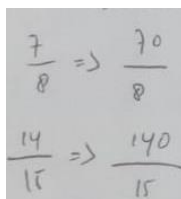 7/8 => 70/8
14/15 => 140/15